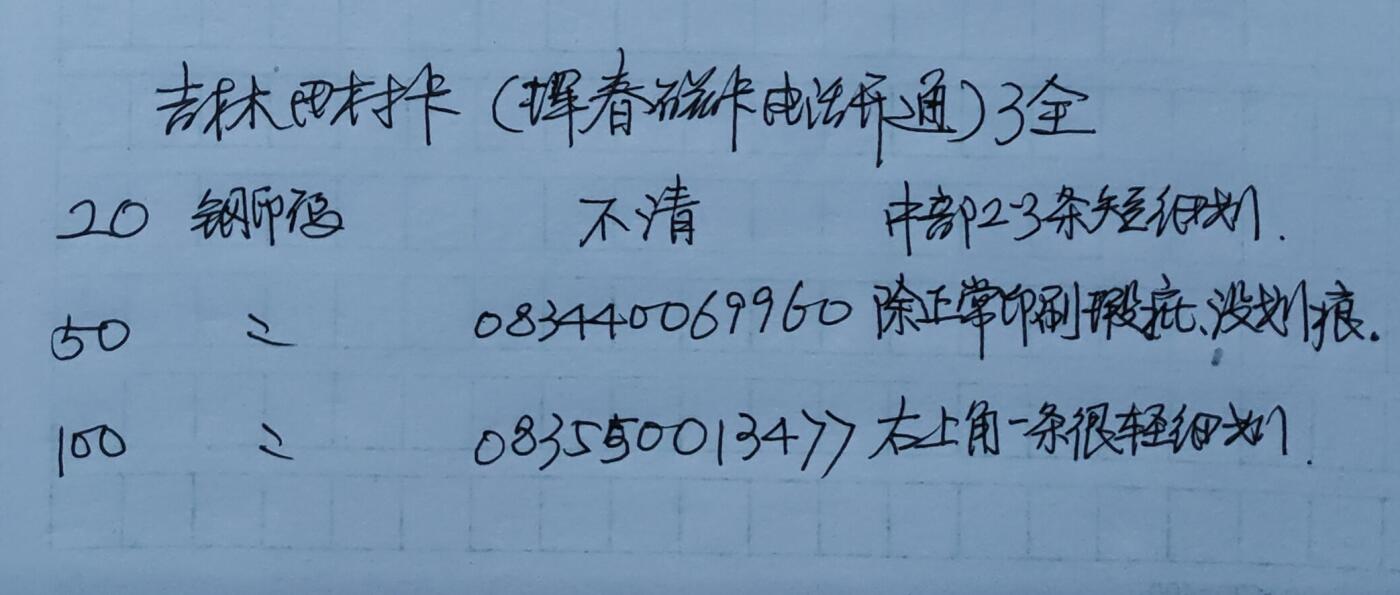 吉林田村卡（珲春磁卡电话开通）3全
20 钢印码 不清 中部2-3条短细划.
50 〃 083440069960 除正常印刷瑕疵、没划痕.
100 〃 083550013477 右上角一条很轻细划.